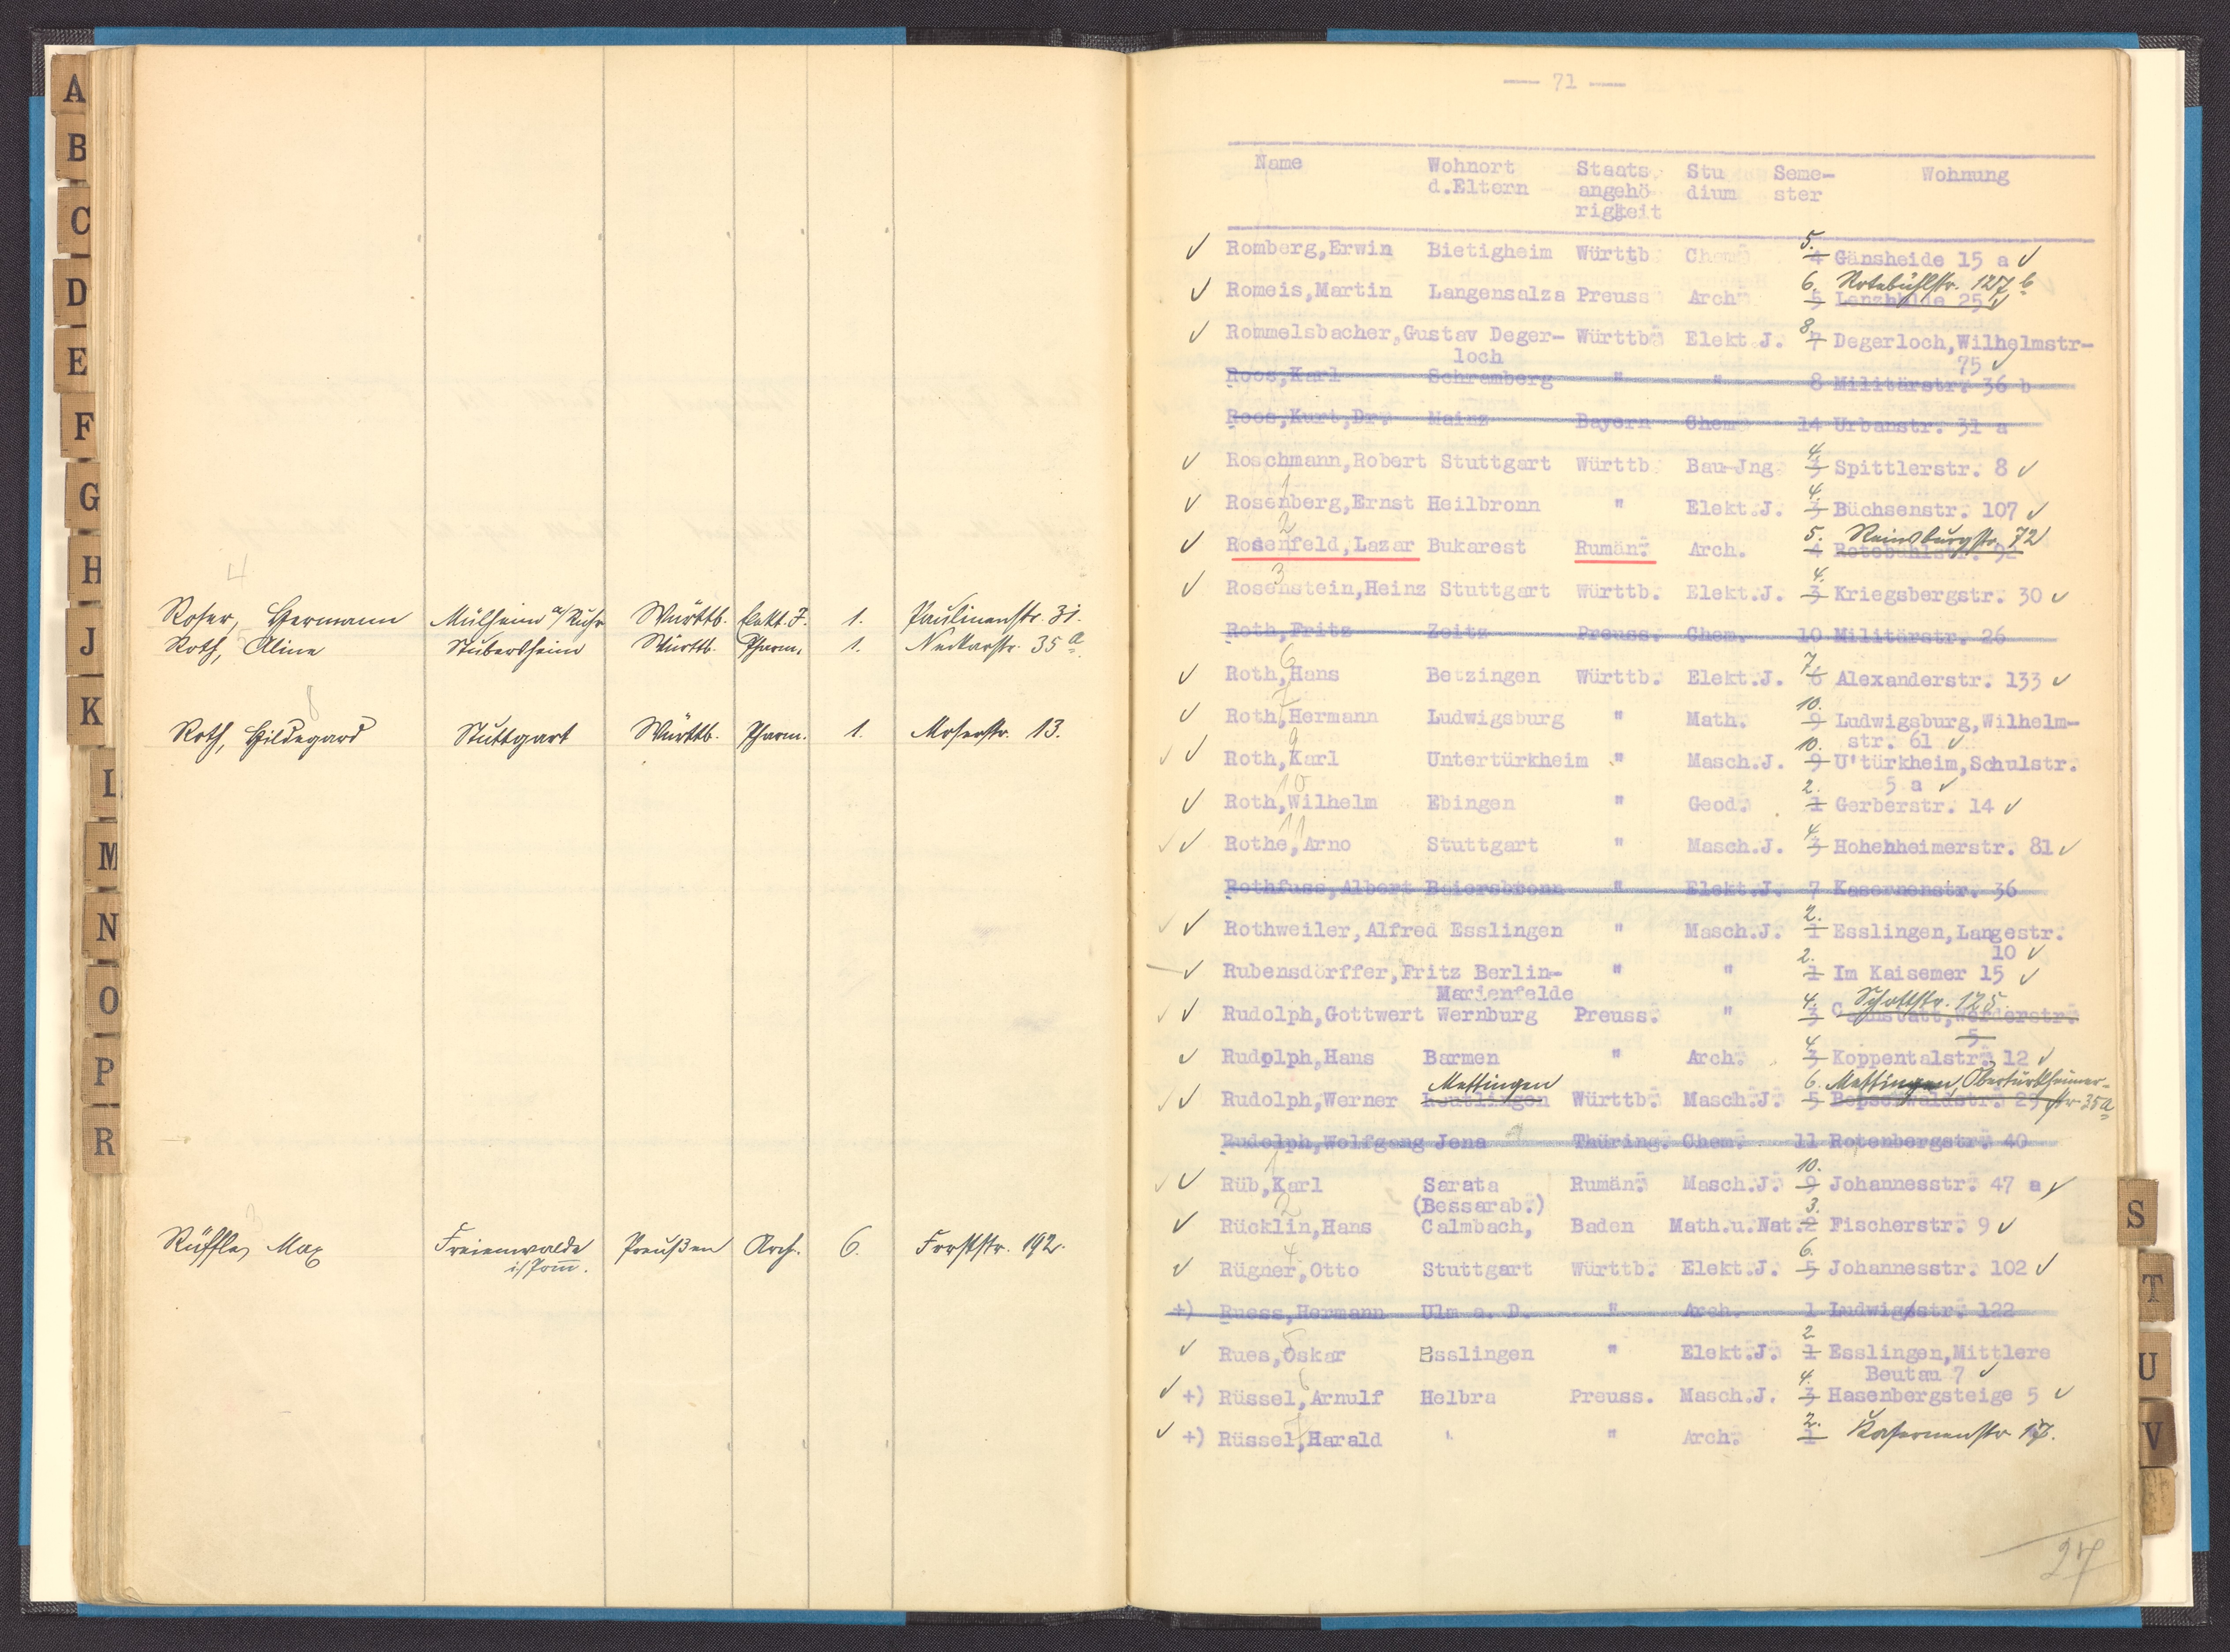 A
B
C
D
E
F
G
H
J
K
L
M
N
O
P
R
4
Roser, Hermann Mülheim a/Ruhr Württb. Elekt. J. 1. Paulinenstr. 31.
5
Roth, Aline Stuberlsheim Württb. Pharm. 1. Neckarstr. 35 a
8
Roth, Hildegard Stuttgart Württb. Pharm. 1. Moserstr. 13.
3
Rüffle, Max Freienwalde Preußen Arch. 6. Forststr. 192.
i/Pom.
— 71 —
Name Wohnort Staats Stu Seme- Wohnung
d.Eltern angehö dium ster
rigkeit
✓ Romberg,Erwin Bietigheim Württb Chem 5. 4 Gänsheide 15 a ✓
✓ Romeis,Martin Langensalza Preuss Arch 6. 5 Rotebühlstr. 127 b Lenzhalde 25 ✓
✓ Rommelsbacher,Gustav Deger- Württb Elekt.J. 8. 7 Degerloch,Wilhelmstr-
loch 75 ✓
Roos,Karl Schramberg " " 8 Militärstr. 36 b
Roos,Kurt,Dr. Mainz Bayern Chem 14 Urbanstr. 31 a
✓ Roschmann,Robert Stuttgart Württb Bau-Jng 4. 3 Spittlerstr. 8 ✓
1
✓ Rosenberg,Ernst Heilbronn " Elekt.J. 4. 3 Büchsenstr. 107 ✓
2
✓ Rosenfeld,Lazar Bukarest Rumän. Arch. 5. 4 Reinsburgstr. 72 Rotebühlstr. 92
3
✓ Rosenstein,Heinz Stuttgart Württb. Elekt.J. 4. 3 Kriegsbergstr. 30 ✓
Roth,Fritz Zeitz Preuss. Chem. 10 Militärstr. 26
6
✓ Roth,Hans Betzingen Württb. Elekt.J. 7. 6 Alexanderstr. 133 ✓
7
✓ Roth,Hermann Ludwigsburg " Math. 10. 9 Ludwigsburg,Wilhelm-
str. 61 ✓
9
✓ ✓ Roth,Karl Untertürkheim " Masch.J. 10. 9 U'türkheim,Schulstr.
5 a ✓
10
✓ Roth,Wilhelm Ebingen " Geod. 2. 1 Gerberstr. 14 ✓
11
✓ ✓ Rothe,Arno Stuttgart " Masch.J. 4. 3 Hohenheimerstr. 81 ✓
Rothfuss,Albert Baiersbronn " Elekt.J. 7 Kasernenstr. 36
✓ ✓ Rothweiler,Alfred Esslingen " Masch.J. 2. 1 Esslingen,Langestr.
10 ✓
✓ Rubensdörffer,Fritz Berlin- " " 2. 1 Im Kaisemer 15 ✓
Marienfelde
✓ ✓ Rudolph,Gottwert Wernburg Preuss. " 4. 3 Schottstr. 125. Cannstatt,Werderstr.
5
✓ Rudolph,Hans Barmen " Arch. 4. 3 Koppentalstr. 12 ✓
✓ ✓ Rudolph,Werner Mettingen Reutlingen Württb. Masch.J. 6. 5 Mettingen, Obertürkheimer-
Bopserwaldstr. 29 str 35 a
Rudolph,Wolfgang Jena Thüring. Chem. 11 Rotenbergstr. 40
1
✓ ✓ Rüb,Karl Sarata Rumän. Masch.J. 10. 9 Johannesstr. 47 a ✓
(Bessarab.)
2
✓ Rücklin,Hans Calmbach, Baden Math.u.Nat. 3. 2 Fischerstr. 9 ✓
4
✓ Rügner,Otto Stuttgart Württb. Elekt.J. 6. 5 Johannesstr. 102 ✓
+) Ruess,Hermann Ulm a. D. " Arch. 1 Ludwigsstr. 122
5
✓ Rues,Oskar Esslingen " Elekt.J. 2 1 Esslingen,Mittlere
Beutau 7 ✓
6
✓ +) Rüssel,Arnulf Helbra Preuss. Masch.J. 4. 3 Hasenbergsteige 5 ✓
7
✓ +) Rüssel,Harald " " Arch. 2. 1 Kasernenstr. 17.
27
S
T
U
V